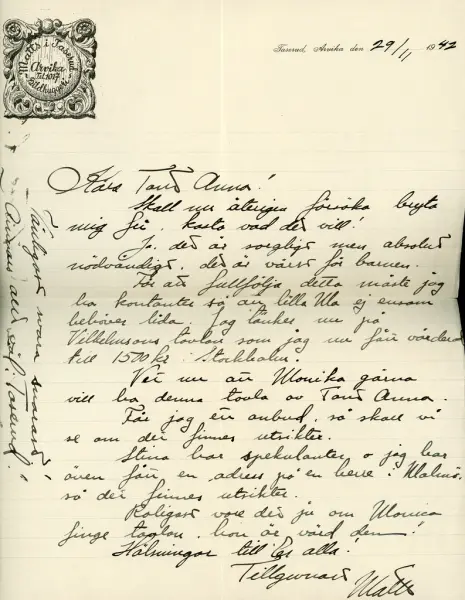 Matts i Taserud
Arvika
Tel. 1017
Bildhuggeri
Taserud, Arvika den 29/11 1942
Kära Tant Anna!
Skall nu återigen försöka bryta
mig fri, kosta vad det vill!
Ja, det är sorgligt men absolut
nödvändigt, det är värst för barnen.
För att fullfölja detta måste jag
ha kontanter så att lilla Ulla ej ensam
behöver lida. Jag tänker nu på
Vilhelmsons tavlan som jag nu fått värderad
till 1500 kr i Stockholm.
Vet nu att Monika gärna
vill ha denna tavla av Tant Anna.
Får jag ett anbud, så skall vi
se om det finnes utsikter.
Stina har spekulanter o jag har
även fått en adress på en herre i Malmö,
så det finnes utsikter.
Roligast vore det ju om Monica
finge tavlan, hon är värd den!
Hälsningar till Er alla!
Tillgivnast
Matts
Vänligast svara snarast
Annars att väl. Taserud!